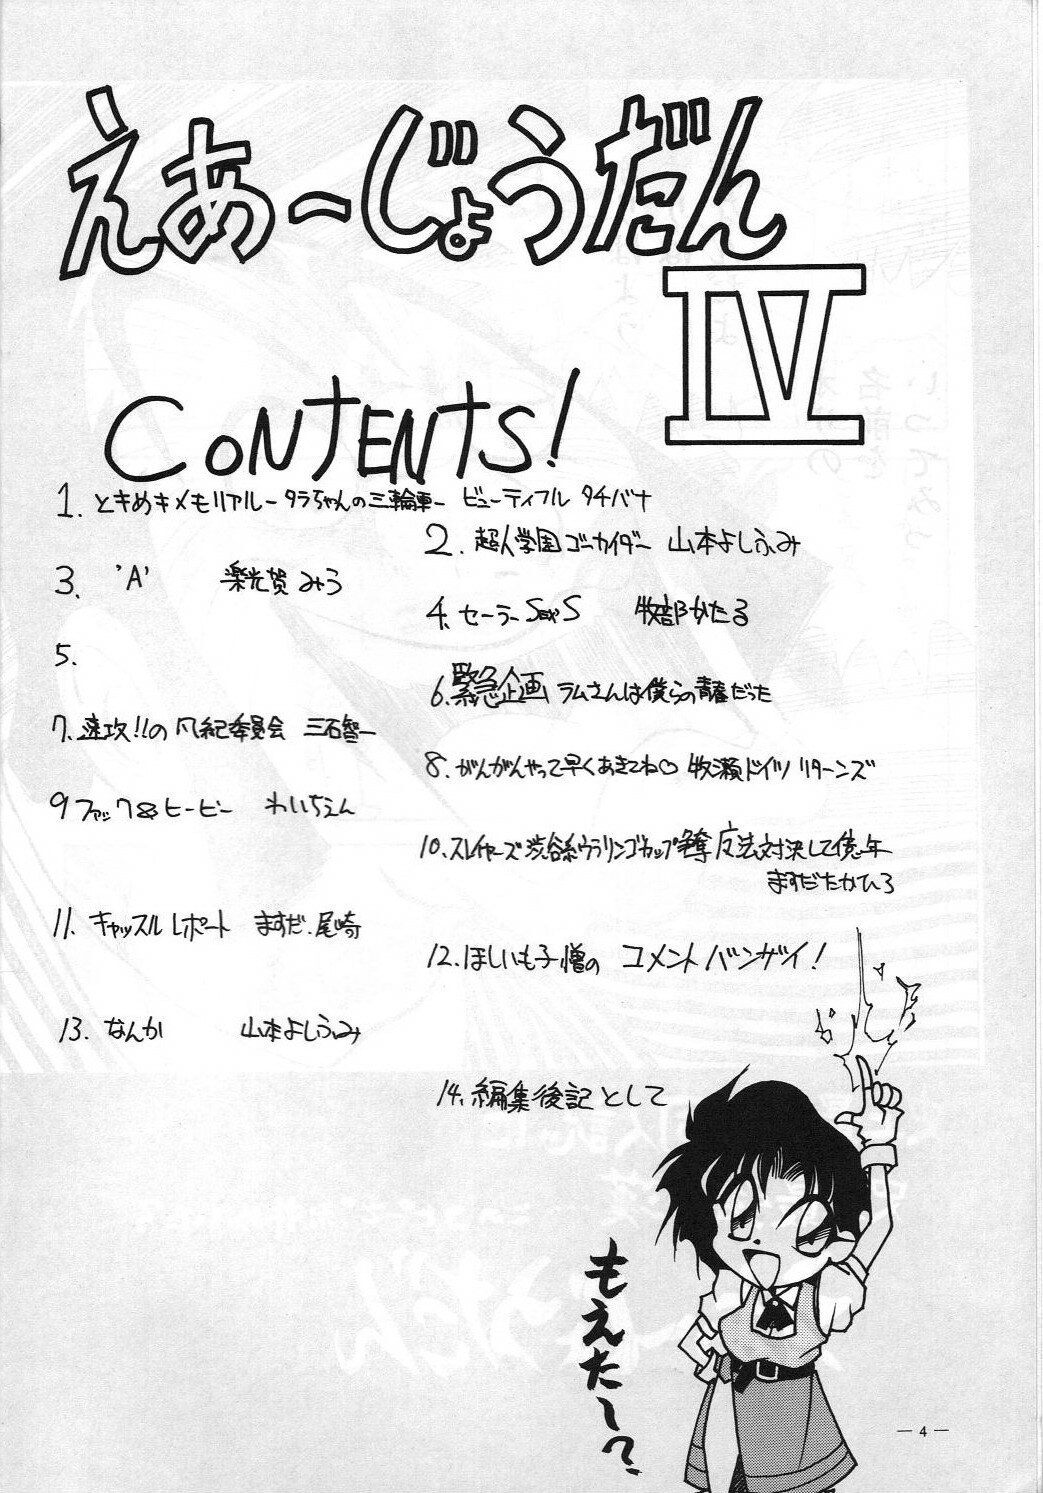 えあーじょうだん
IV
CONTENTS!
1. ときめキメモリアルータラちゃんの三輪車ー ビューティフル タチバナ
2. 超人学園ゴーカイダー 山本よしふみ
3. 'A' 楽光賀みう
4. セーラーSEXS 牧部かたる
5.
6. 緊急企画 ラムさんは僕らの青春だった
7. 速攻!!の風紀委員会 三石智一
8. がんがんやって早くあきてね♡ 牧瀬ドイツ リターンズ
9 ファック&ヒービー わいちえん
10. スレイヤーズ渋谷系ウラリンゴカップ争奪 魔法対決して億年
ますだたかひろ
11. キャッスルレポート ますだ、尾崎
12. ほしいも子僧の コメントバンザイ!
13. なんか 山本よしふみ
14. 編集後記として
びしっ
もえたーっ?
— 4 —